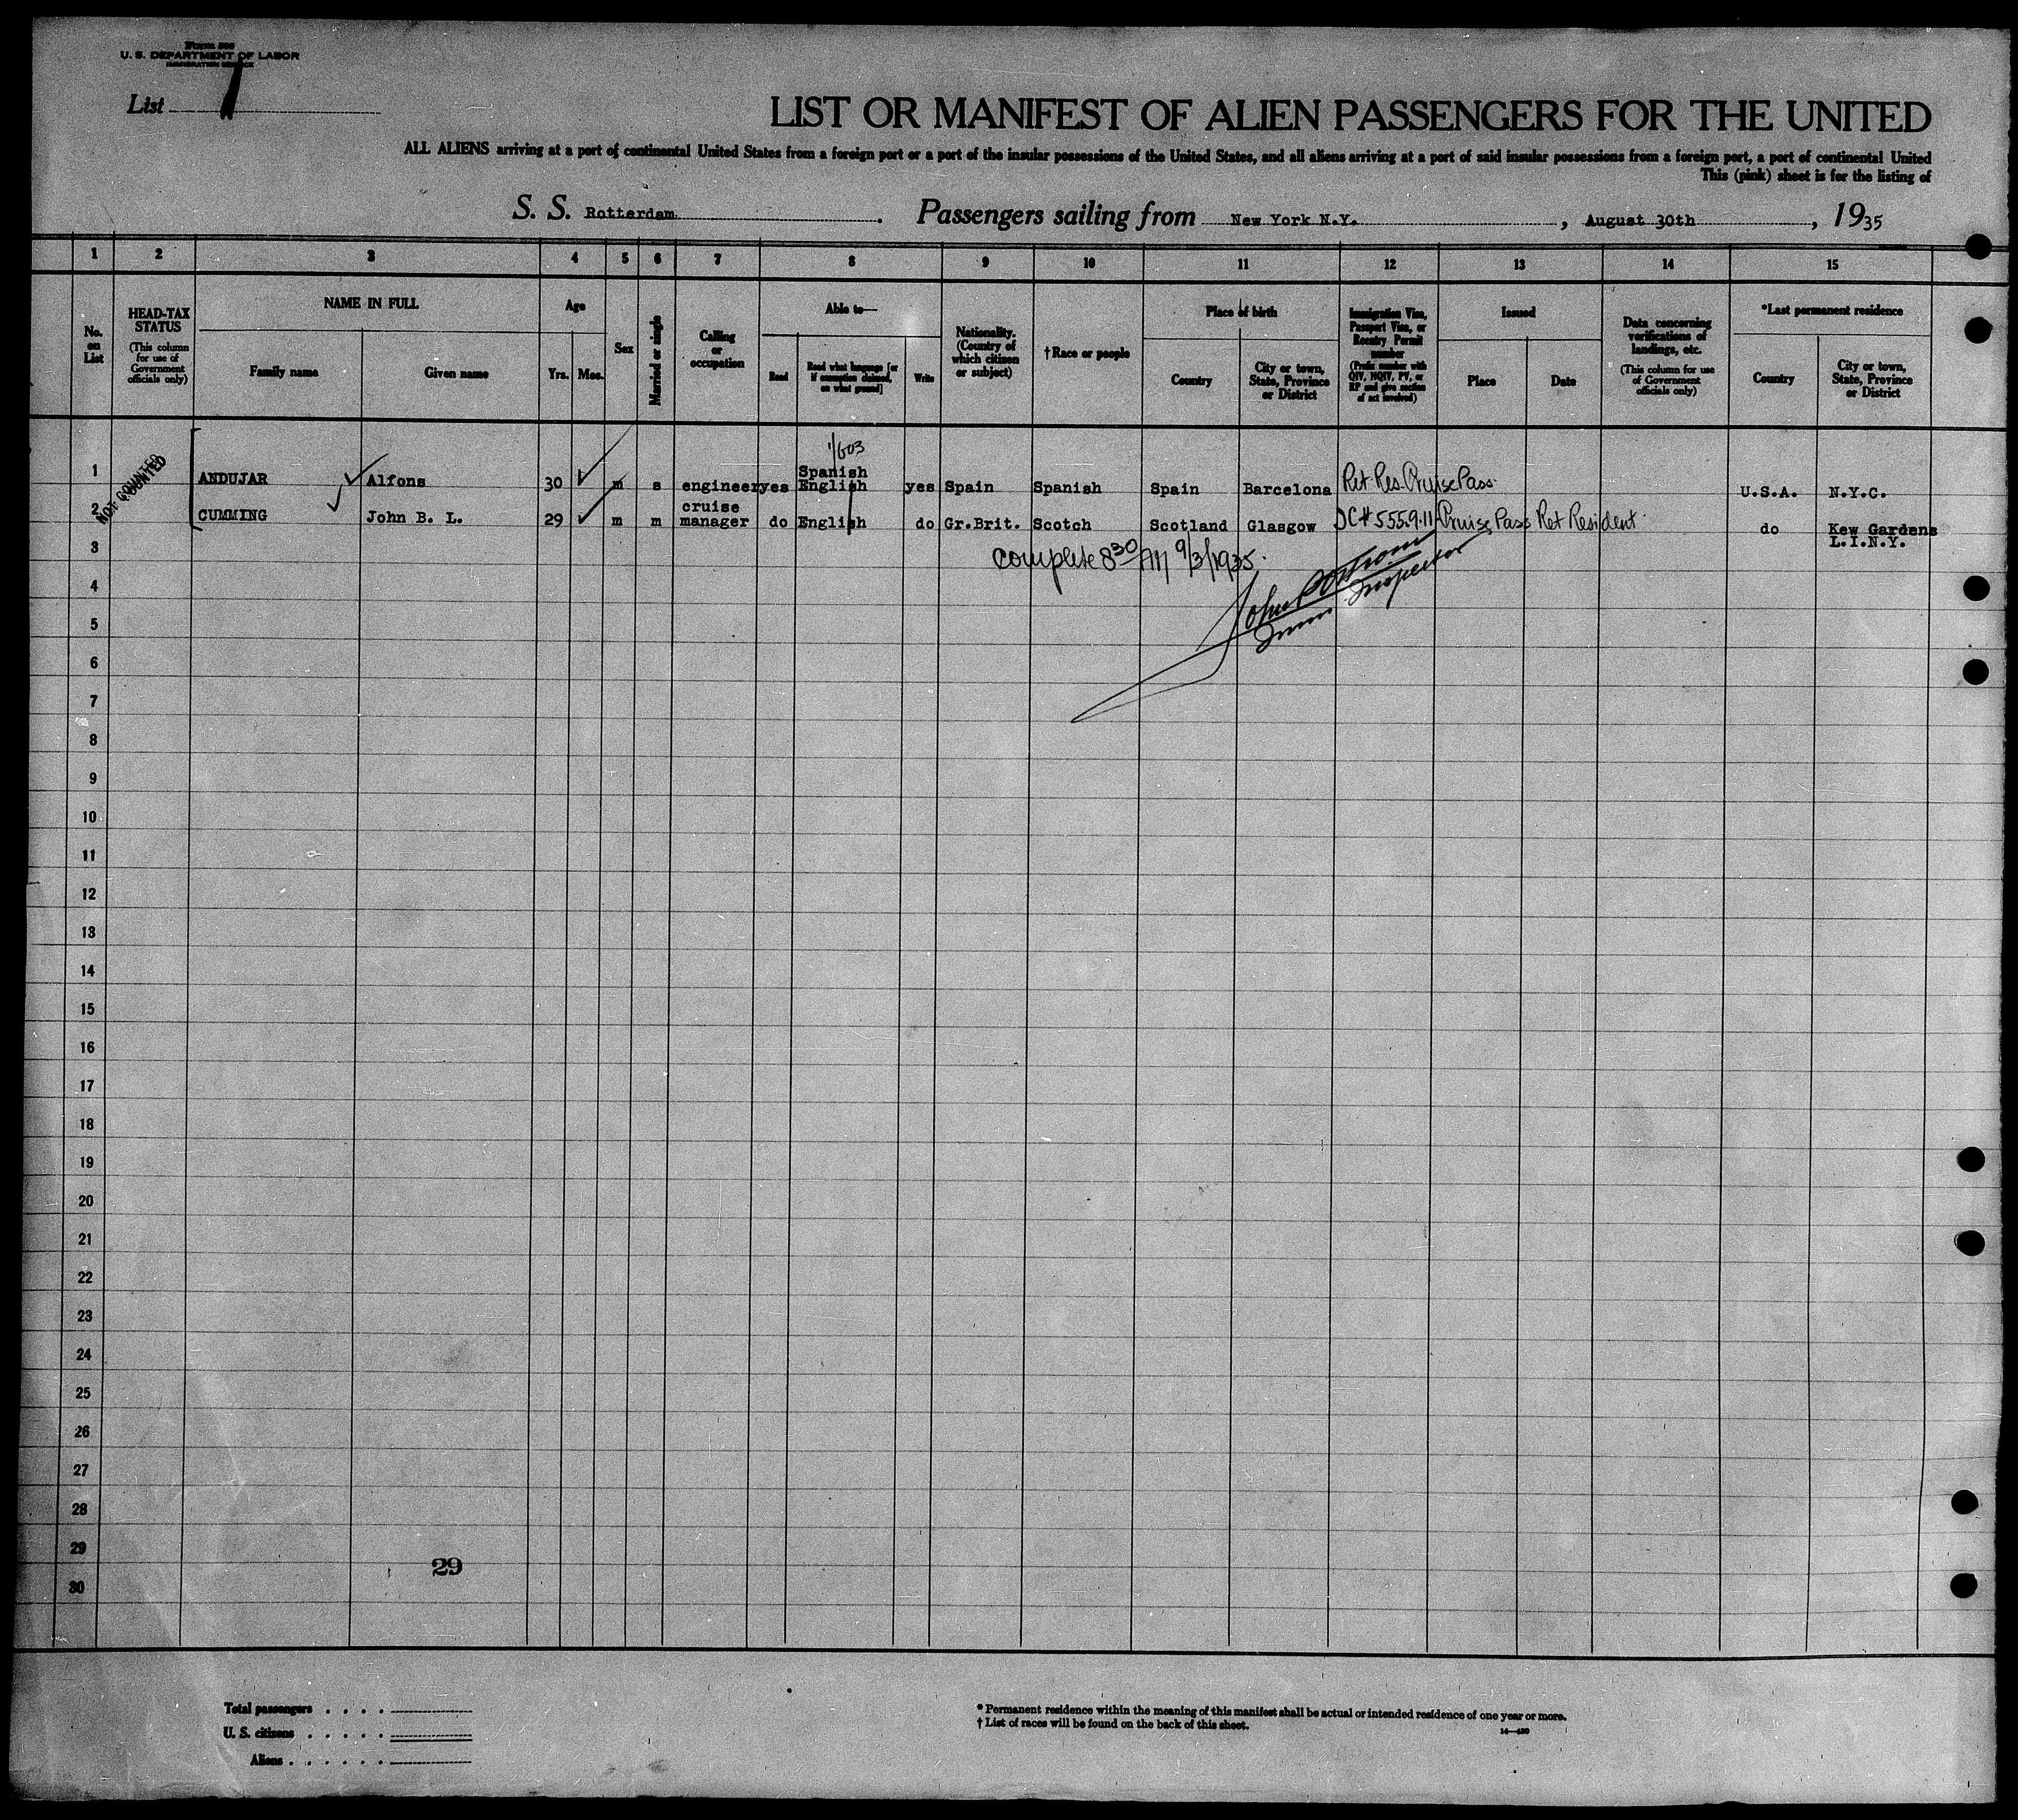 Form 500
U. S. DEPARTMENT OF LABOR
IMMIGRATION SERVICE
List 1
LIST OR MANIFEST OF ALIEN PASSENGERS FOR THE UNITED
ALL ALIENS arriving at a port of continental United States from a foreign port or a port of the insular possessions of the United States, and all aliens arriving at a port of said insular possessions from a foreign port, a port of continental United
This (pink) sheet is for the listing of
S. S. Rotterdam. Passengers sailing from New York N.Y., August 30th, 1935
1 2 3 4 5 6 7 8 9 10 11 12 13 14 15
No. on List
HEAD-TAX STATUS
(This column for use of Government officials only)
NAME IN FULL
Family name Given name
Age
Yrs. Mos.
Sex
Married or single
Calling or occupation
Able to—
Read Read what language [or if exemption claimed, on what ground] Write
Nationality. (Country of which citizen or subject)
†Race or people
Place of birth
Country City or town, State, Province or District
Immigration Visa, Passport Visa, or Reentry Permit number
(Prefix number with QIV, NQIV, PV, or RP and give section of act involved)
Issued
Place Date
Data concerning verifications of landings, etc.
(This column for use of Government officials only)
*Last permanent residence
Country City or town, State, Province or District
NOT COUNTED
1/603
1 ANDUJAR Alfons 30 m s engineer yes Spanish English yes Spain Spanish Spain Barcelona Ret. Res. Cruise Pass. U.S.A. N.Y.C.
2 CUMMING John B. L. 29 m m cruise manager do English do Gr.Brit. Scotch Scotland Glasgow DC# 555911 Cruise Pass Ret Resident do Kew Gardens L.I.N.Y.
3 complete 8 30 AM 9/3/1935.
4 John
5 Imm Inspector
6
7
8
9
10
11
12
13
14
15
16
17
18
19
20
21
22
23
24
25
26
27
28
29
29
30
Total passengers . . . .
U. S. citizens . . . . .
Aliens . . . . . .
* Permanent residence within the meaning of this manifest shall be actual or intended residence of one year or more.
† List of races will be found on the back of this sheet.
14—430